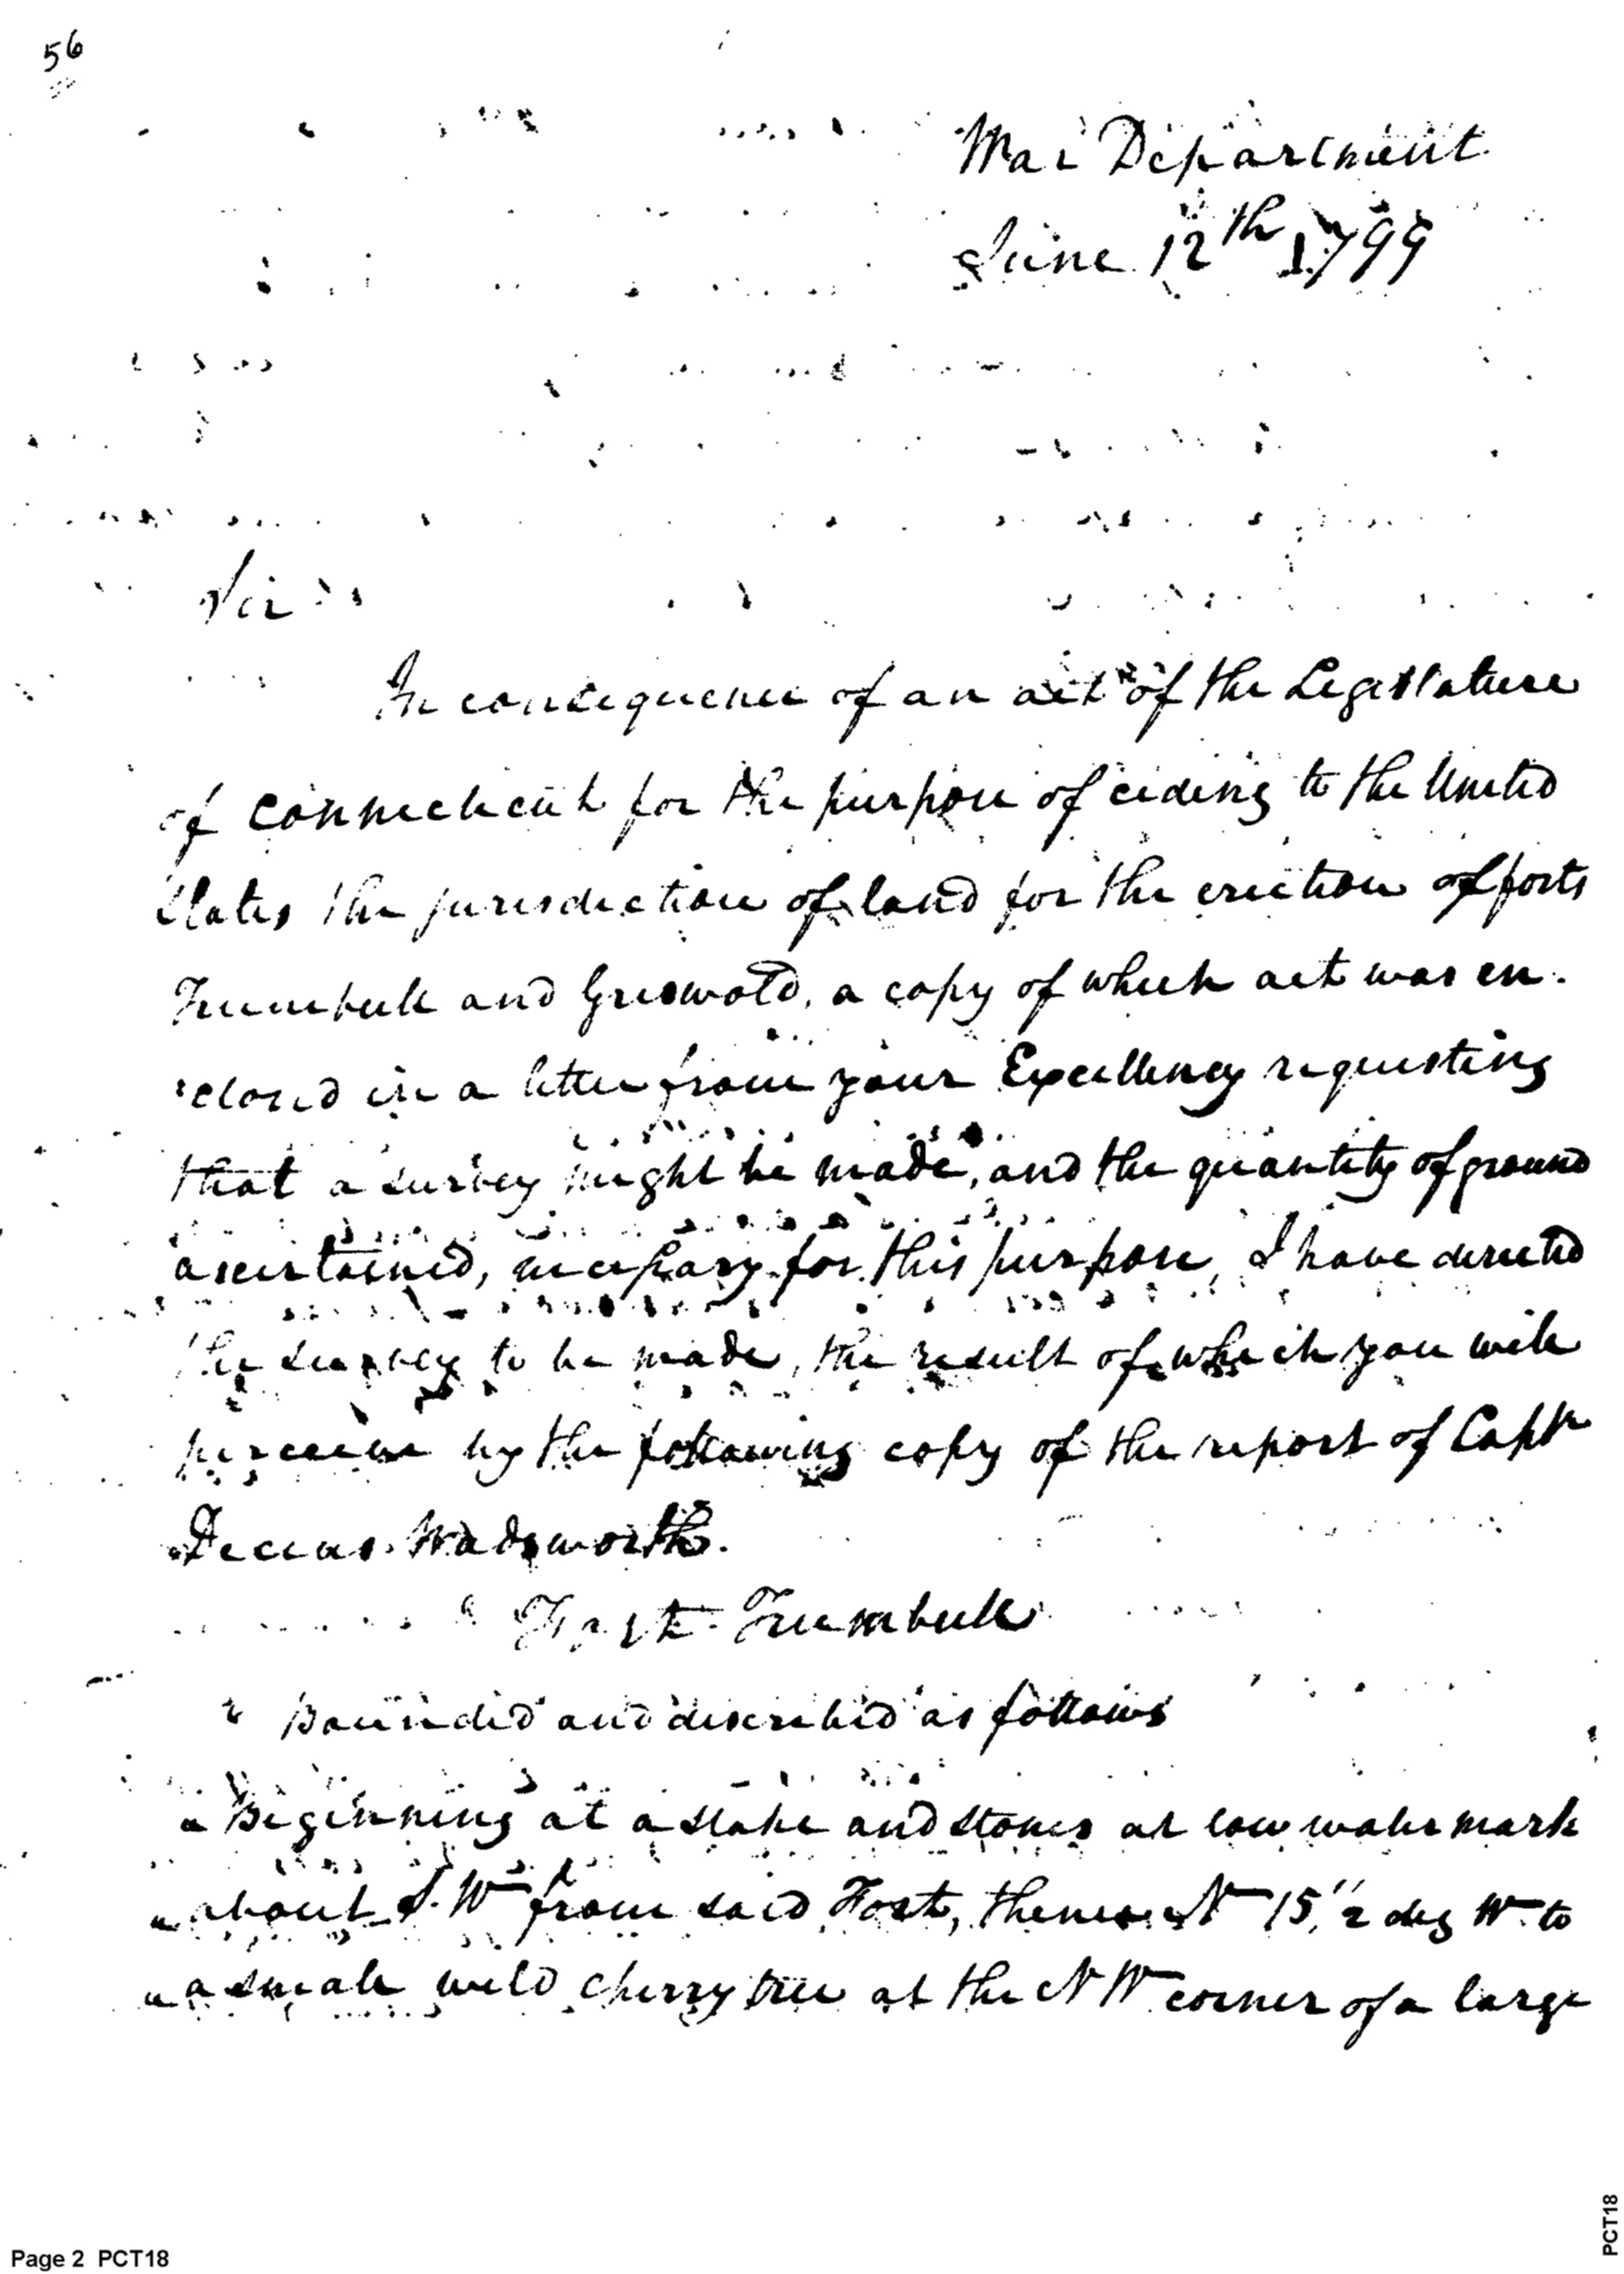 56
War Department
June 12th 1799
Sir
In consequence of an act of the Legislature
of Connecticut for the purpose of ceding to the United
States the jurisdiction of land for the erection of forts
Trumbull and Griswold, a copy of which act was en-
closed in a letter from your Excellency requesting
that a survey might be made, and the quantity of ground
ascertained, necessary for this purpose, I have directed
the survey to be made, the result of which you will
perceive by the following copy of the report of Captn
Decius Wadsworth.
" Fort Trumbull
" Bounded and described as follows
" Beginning at a stake and stones at low water mark
" about S. W from said Fort, thence N 15 1/2 deg W to
" a small wild cherry tree at the N W corner of a large
Page 2 PCT18
PCT18